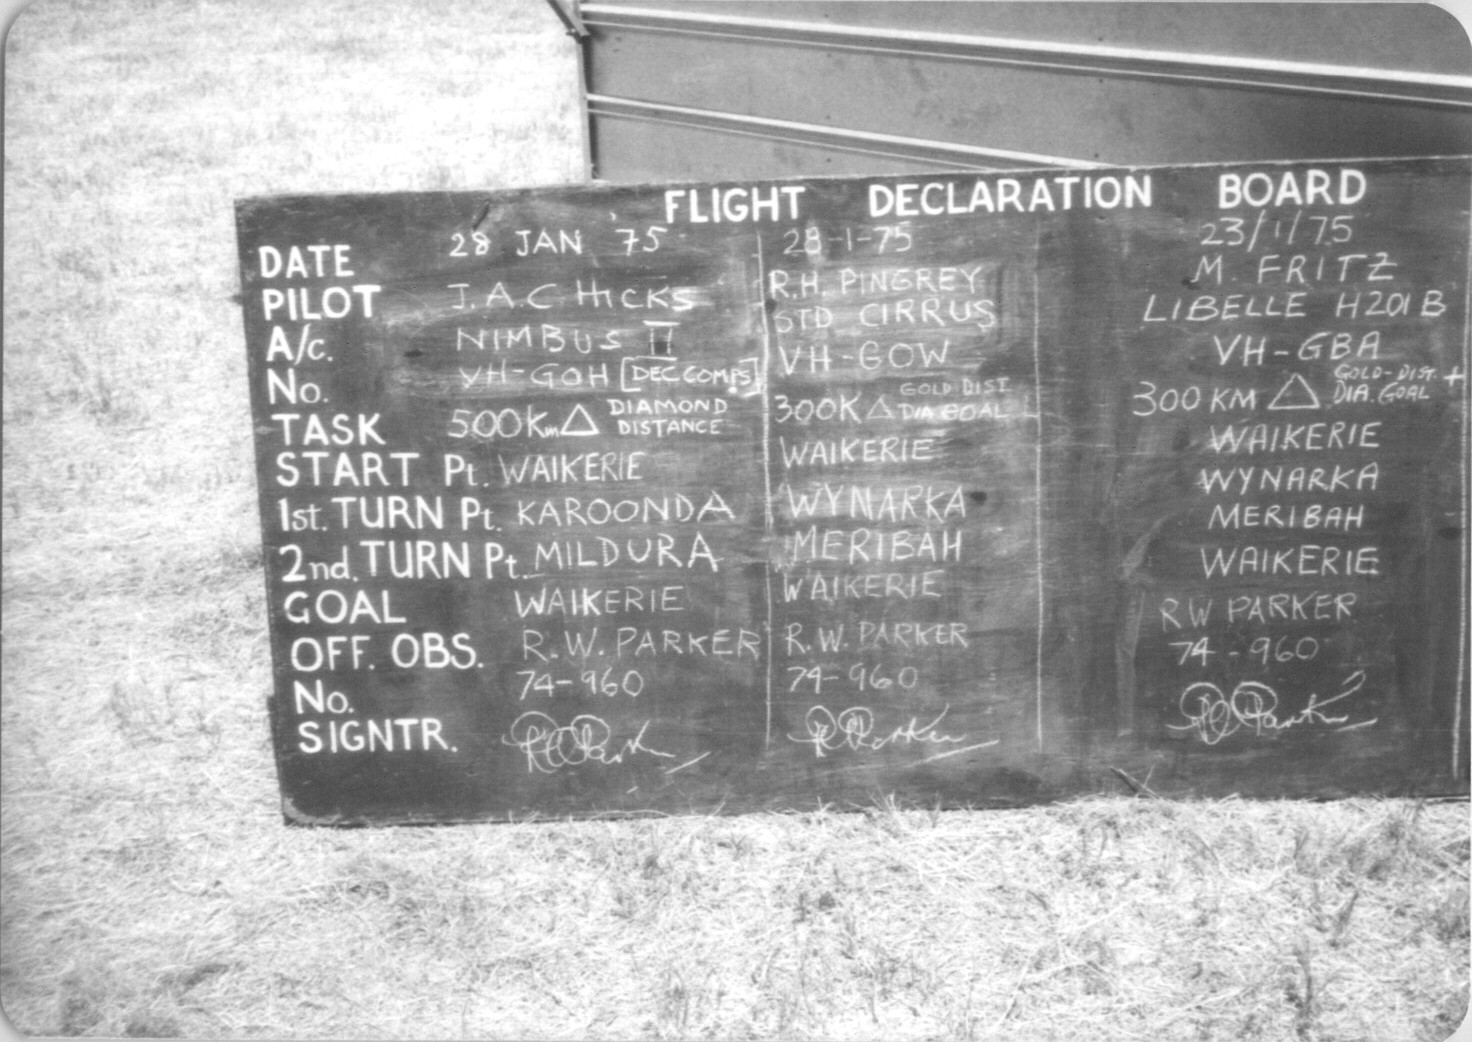 FLIGHT DECLARATION BOARD
DATE 28 JAN 75 28-1-75 23/1/75
PILOT J.A.C HICKS R.H. PINGREY M. FRITZ
A/c. NIMBUS II STD CIRRUS LIBELLE H201B
No. VH-GOH [DEC COMPS] VH-GOW VH-GBA
TASK 500Km △ DIAMOND DISTANCE 300K △ GOLD DIST. DIA GOAL 300KM △ GOLD-DIST. + DIA. GOAL
START Pt. WAIKERIE WAIKERIE WAIKERIE
1st. TURN Pt. KAROONDA WYNARKA WYNARKA
2nd. TURN Pt. MILDURA MERIBAH MERIBAH
GOAL WAIKERIE WAIKERIE WAIKERIE
OFF. OBS. R.W. PARKER R.W. PARKER RW PARKER
No. 74-960 74-960 74-960
SIGNTR. RW Parker RW Parker RW Parker